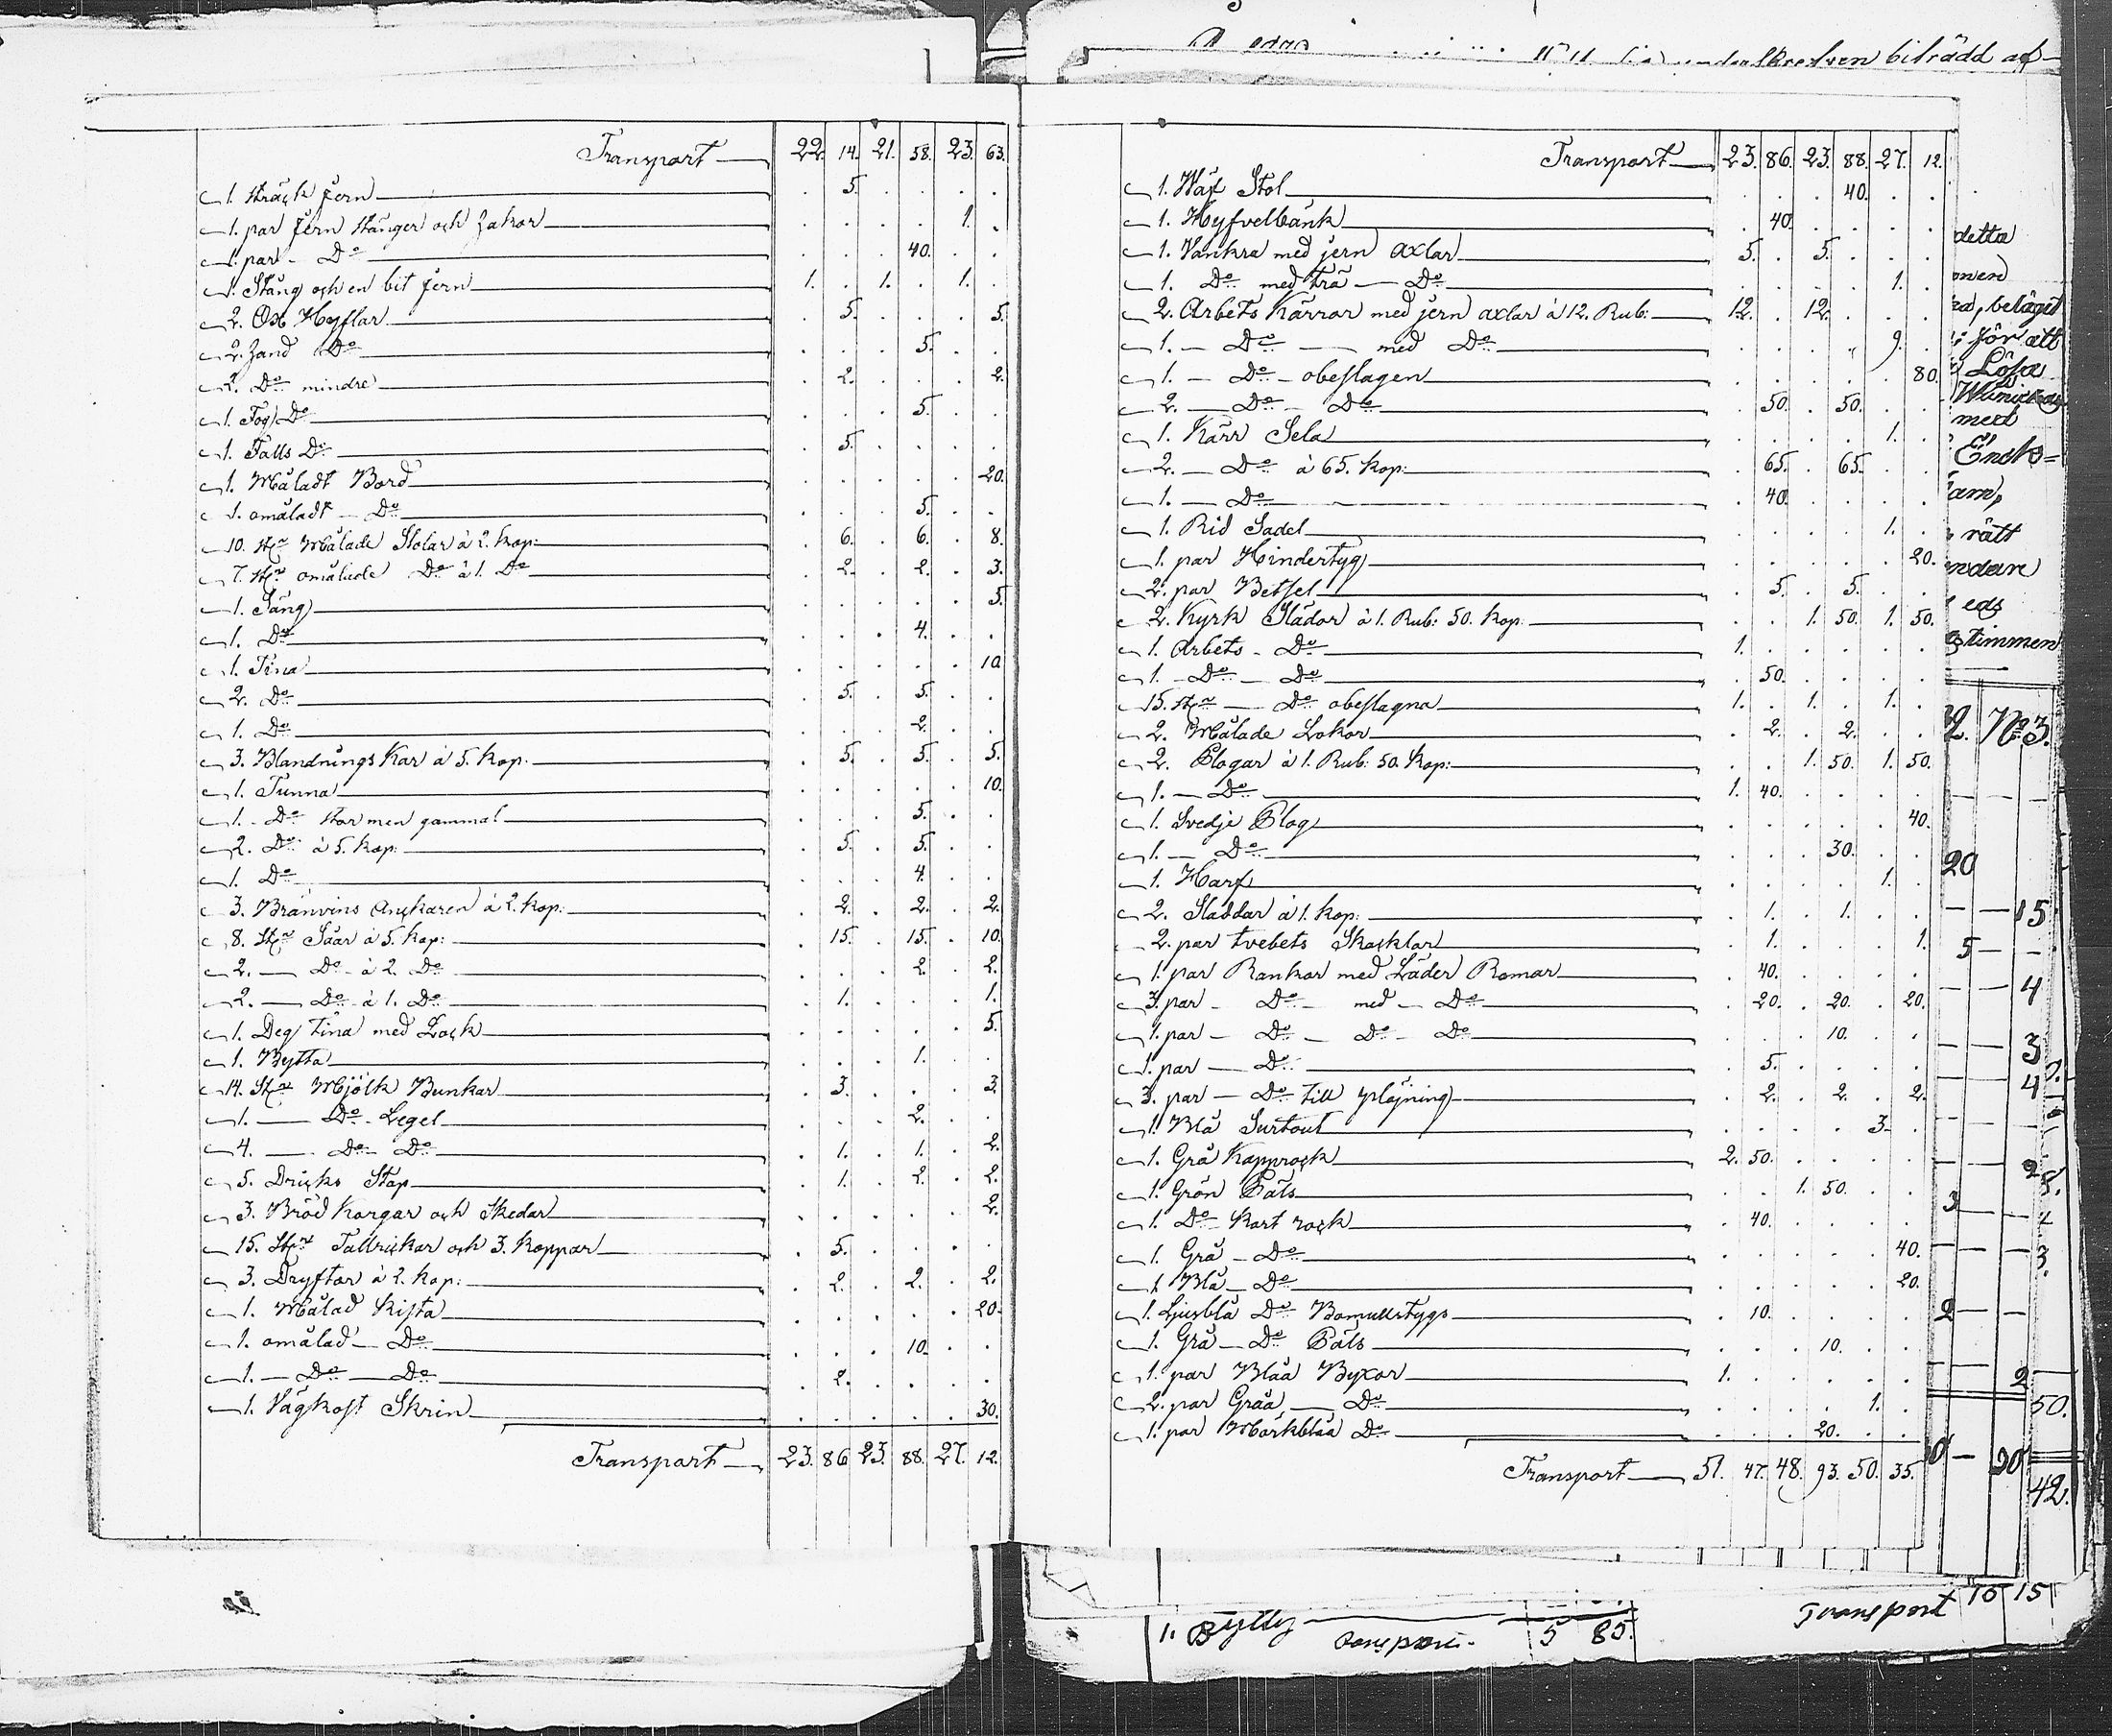 Transport 22. 14. 21. 58. 23. 63.
1. Sträck jern 5.
1. par jern stänger och hakor 1.
1. par Do 40.
1. Stång och en bit jern 1. 1. 1.
2. Ox Hyflar 5. 5.
2. Hand Do 5.
2. Do mindre 2. 2.
1. Fog Do 5.
1. Falls Do 5.
1. Måladt Bord 20.
1. omåladt Do 5.
10. St. Målade Stolar à 2. kop: 6. 6. 8.
7. St. omålade Do à 1. Do 2. 2. 3.
1. Säng 5.
1. Do 4.
1. Tina 10.
2. Do 5. 5.
1. Do 2.
3. Blandnings Kar à 5. kop. 5. 5. 5.
1. Tunna 10.
1. Do stor men gammal 5.
2. Do à 5. kop: 5. 5.
1. Do 4.
3. Bränvins Anckaren à 2. kop: 2. 2. 2.
8. St. Såar à 5. kop: 15. 15. 10.
2. Do à 2. Do 2. 2.
2. Do à 1. Do 1. 1.
1. Deg Tina med Lock 5.
1. Bytta 1.
14. St. Mjölk Bunkar 3. 3.
1. Do Legel 2.
4. Do Do 1. 1. 2.
5. Dricks Stop 1. 2. 2.
3. Bröd Korgar och Skedar 2.
15. St. Tallrickar och 3. Koppar 5.
3. Dryftor à 2. kop: 2. 2. 2.
1. Målad Kista 20.
1. omålad Do 10.
1. Do Do 2.
1. Vägkost Skrin 30.
Transport 23. 86 23. 88. 27. 12.
Transport 23. 86. 23. 88. 27. 12.
1. Wäf Stol 40.
1. Hyfvelbänk 40.
1. Vankra med jern axlar 5. 5.
1. Do med trä Do 1.
2. Arbets Kärror med jern axlar à 12. Rub: 12. 12.
1. Do med Do 9.
1. Do obeslagen 80.
2. Do Do 50. 50.
1. Kärr Sela 1.
2. Do à 65. kop: 65. 65.
1. Do 40.
1. Rid Sadel 1.
1. par Hindertyg 20.
2. par Betsel 5. 5.
2. Kyrk Slädor à 1. Rub: 50. kop. 1. 50. 1. 50.
1. Arbets Do 1.
1. Do Do 50.
15. St. Do obeslagna 1. 1. 1.
2. Målade Lokor 2. 2.
2. Plogar à 1. Rub: 50. kop: 1. 50. 1. 50.
1. Do 1. 40.
1. Svedje Plog 40.
1. Do 30.
1. Harf 1.
2. Sladdar à 1. kop: 1. 1.
2. par tvebets Skacklor 1. 1.
1. par Rankor med Läder Remar 40.
3. par Do med Do 20. 20. 20.
1. par Do Do Do 10.
1. par Do 5.
3. par Do till plöjning 2. 2. 2.
1. Blå Surtout 3.
1. Grå Kapprock 2. 50.
1. Grön Päls 1. 50.
1. Do Kort rock 40.
1. Grå Do 40.
1. Blå Do 20.
1. Ljusblå Do Bomullstygs 10.
1. Grå Do Päls 10.
1. par Blåa Byxor 1.
2. par Gråa Do 1.
1. par Mörkblåa Do 20.
Transport 51. 47. 48. 93. 50. 35.
biträdd af
detta
beläget
för att
Lösa
med
rätt
eds
timmen
No 3.
20
15
5
4
3
4
3
3.
2
2
50.
42.
1. Bytty
5 85.
Transport 10 15